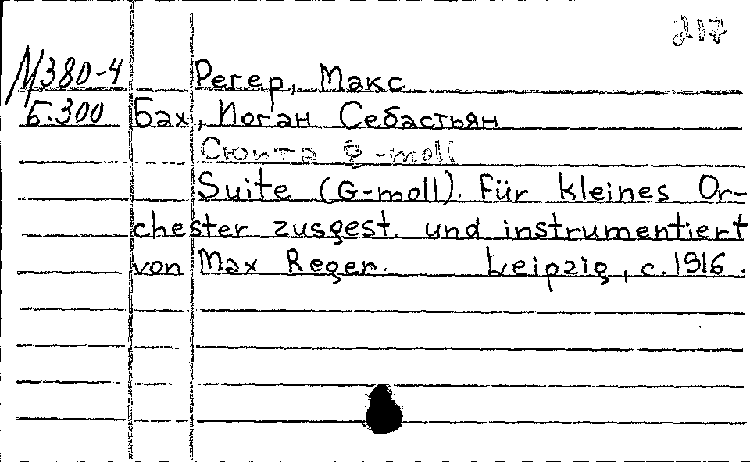 217
М380-4 Регер, Макс
Б.300 Бах, Иоган Себастьян
Сюита g-moll
Suite (G-moll). Für kleines Or-
chester zusgest. und instrumentiert
von Max Reger. Leipzig, c.1916.